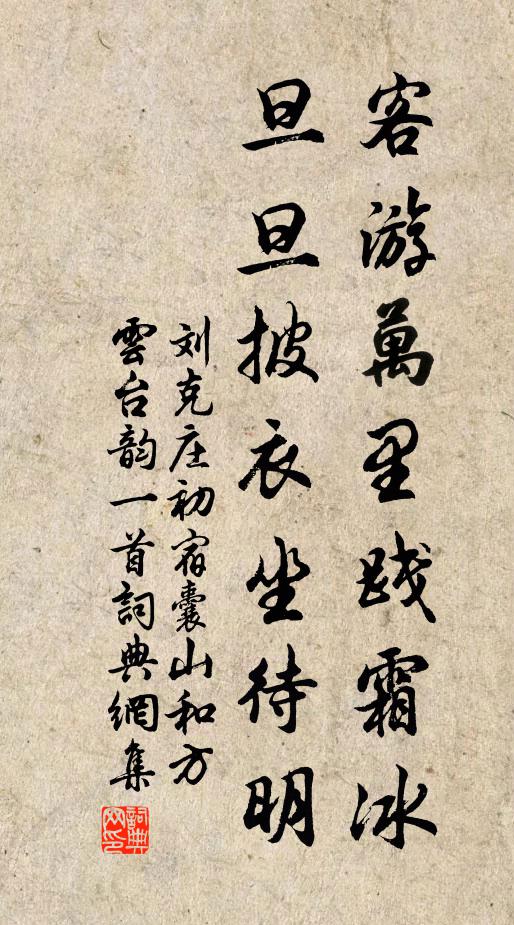 客游萬里踐霜冰
旦旦披衣坐待明
刘克庄初宿囊山和方
雲台韵一首詞典網集
詞典网印